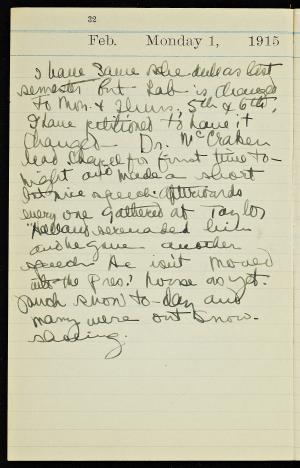 32
Feb. Monday 1, 1915
I have same schedule as last
semester but Lab is changed
to Mon. & Thurs. 5th & 6th,
I have petitioned to have it
changed. Dr. McCraken
lead chapel for first time to-
night and made a short
but nice speech. Afterwards
every one gathered at Taylor
Hall and serenaded him
and he gave another
speech. He isn't moved
into the Pres.' house as yet.
Much snow to-day and
many were out snow-
shoeing.